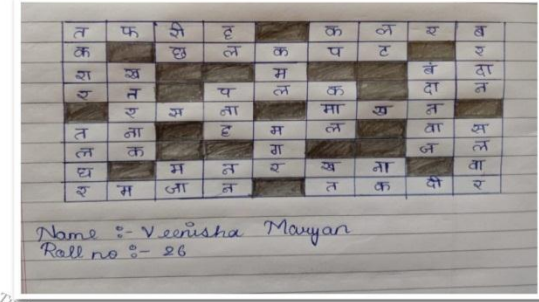 त फ री ह क ल र ब
क छ ल क प ट र
रा ख म बं दा
र त प ल क दा न
र स ना मा ख न
त ना ह म ल वा स
ल क ग ज ल
घ म न र ख ना वा
र म जा न त क दी र
Name :- Veenisha Maryan
Roll no :- 26